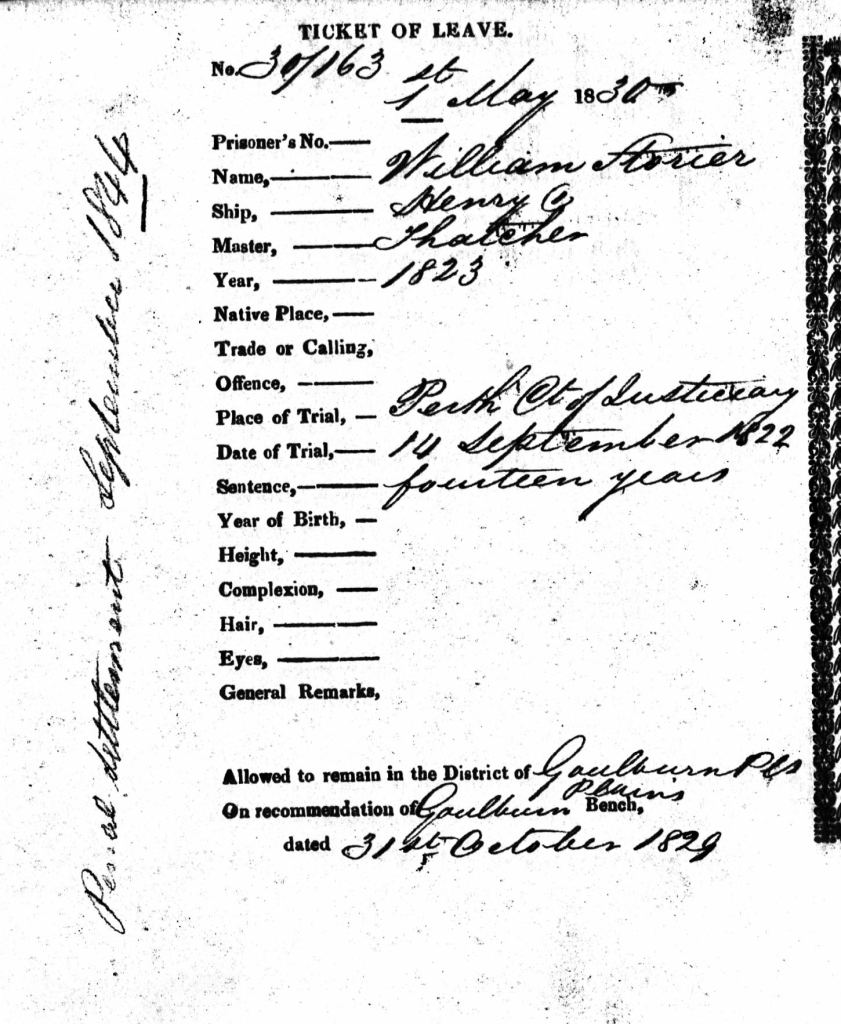 TICKET OF LEAVE.
No. 30/163
1st May 1830
Prisoner's No.
Name, William Storier
Ship, Henry
Master, Thatcher
Year, 1823
Native Place,
Trade or Calling,
Offence,
Place of Trial, Perth Ct of Justiciary
Date of Trial, 14 September 1822
Sentence, fourteen years
Year of Birth,
Height,
Complexion,
Hair,
Eyes,
General Remarks,
Allowed to remain in the District of Goulburn Pls
On recommendation of Goulburn Plains Bench,
dated 31st October 1829
Penal Settlement September 1844